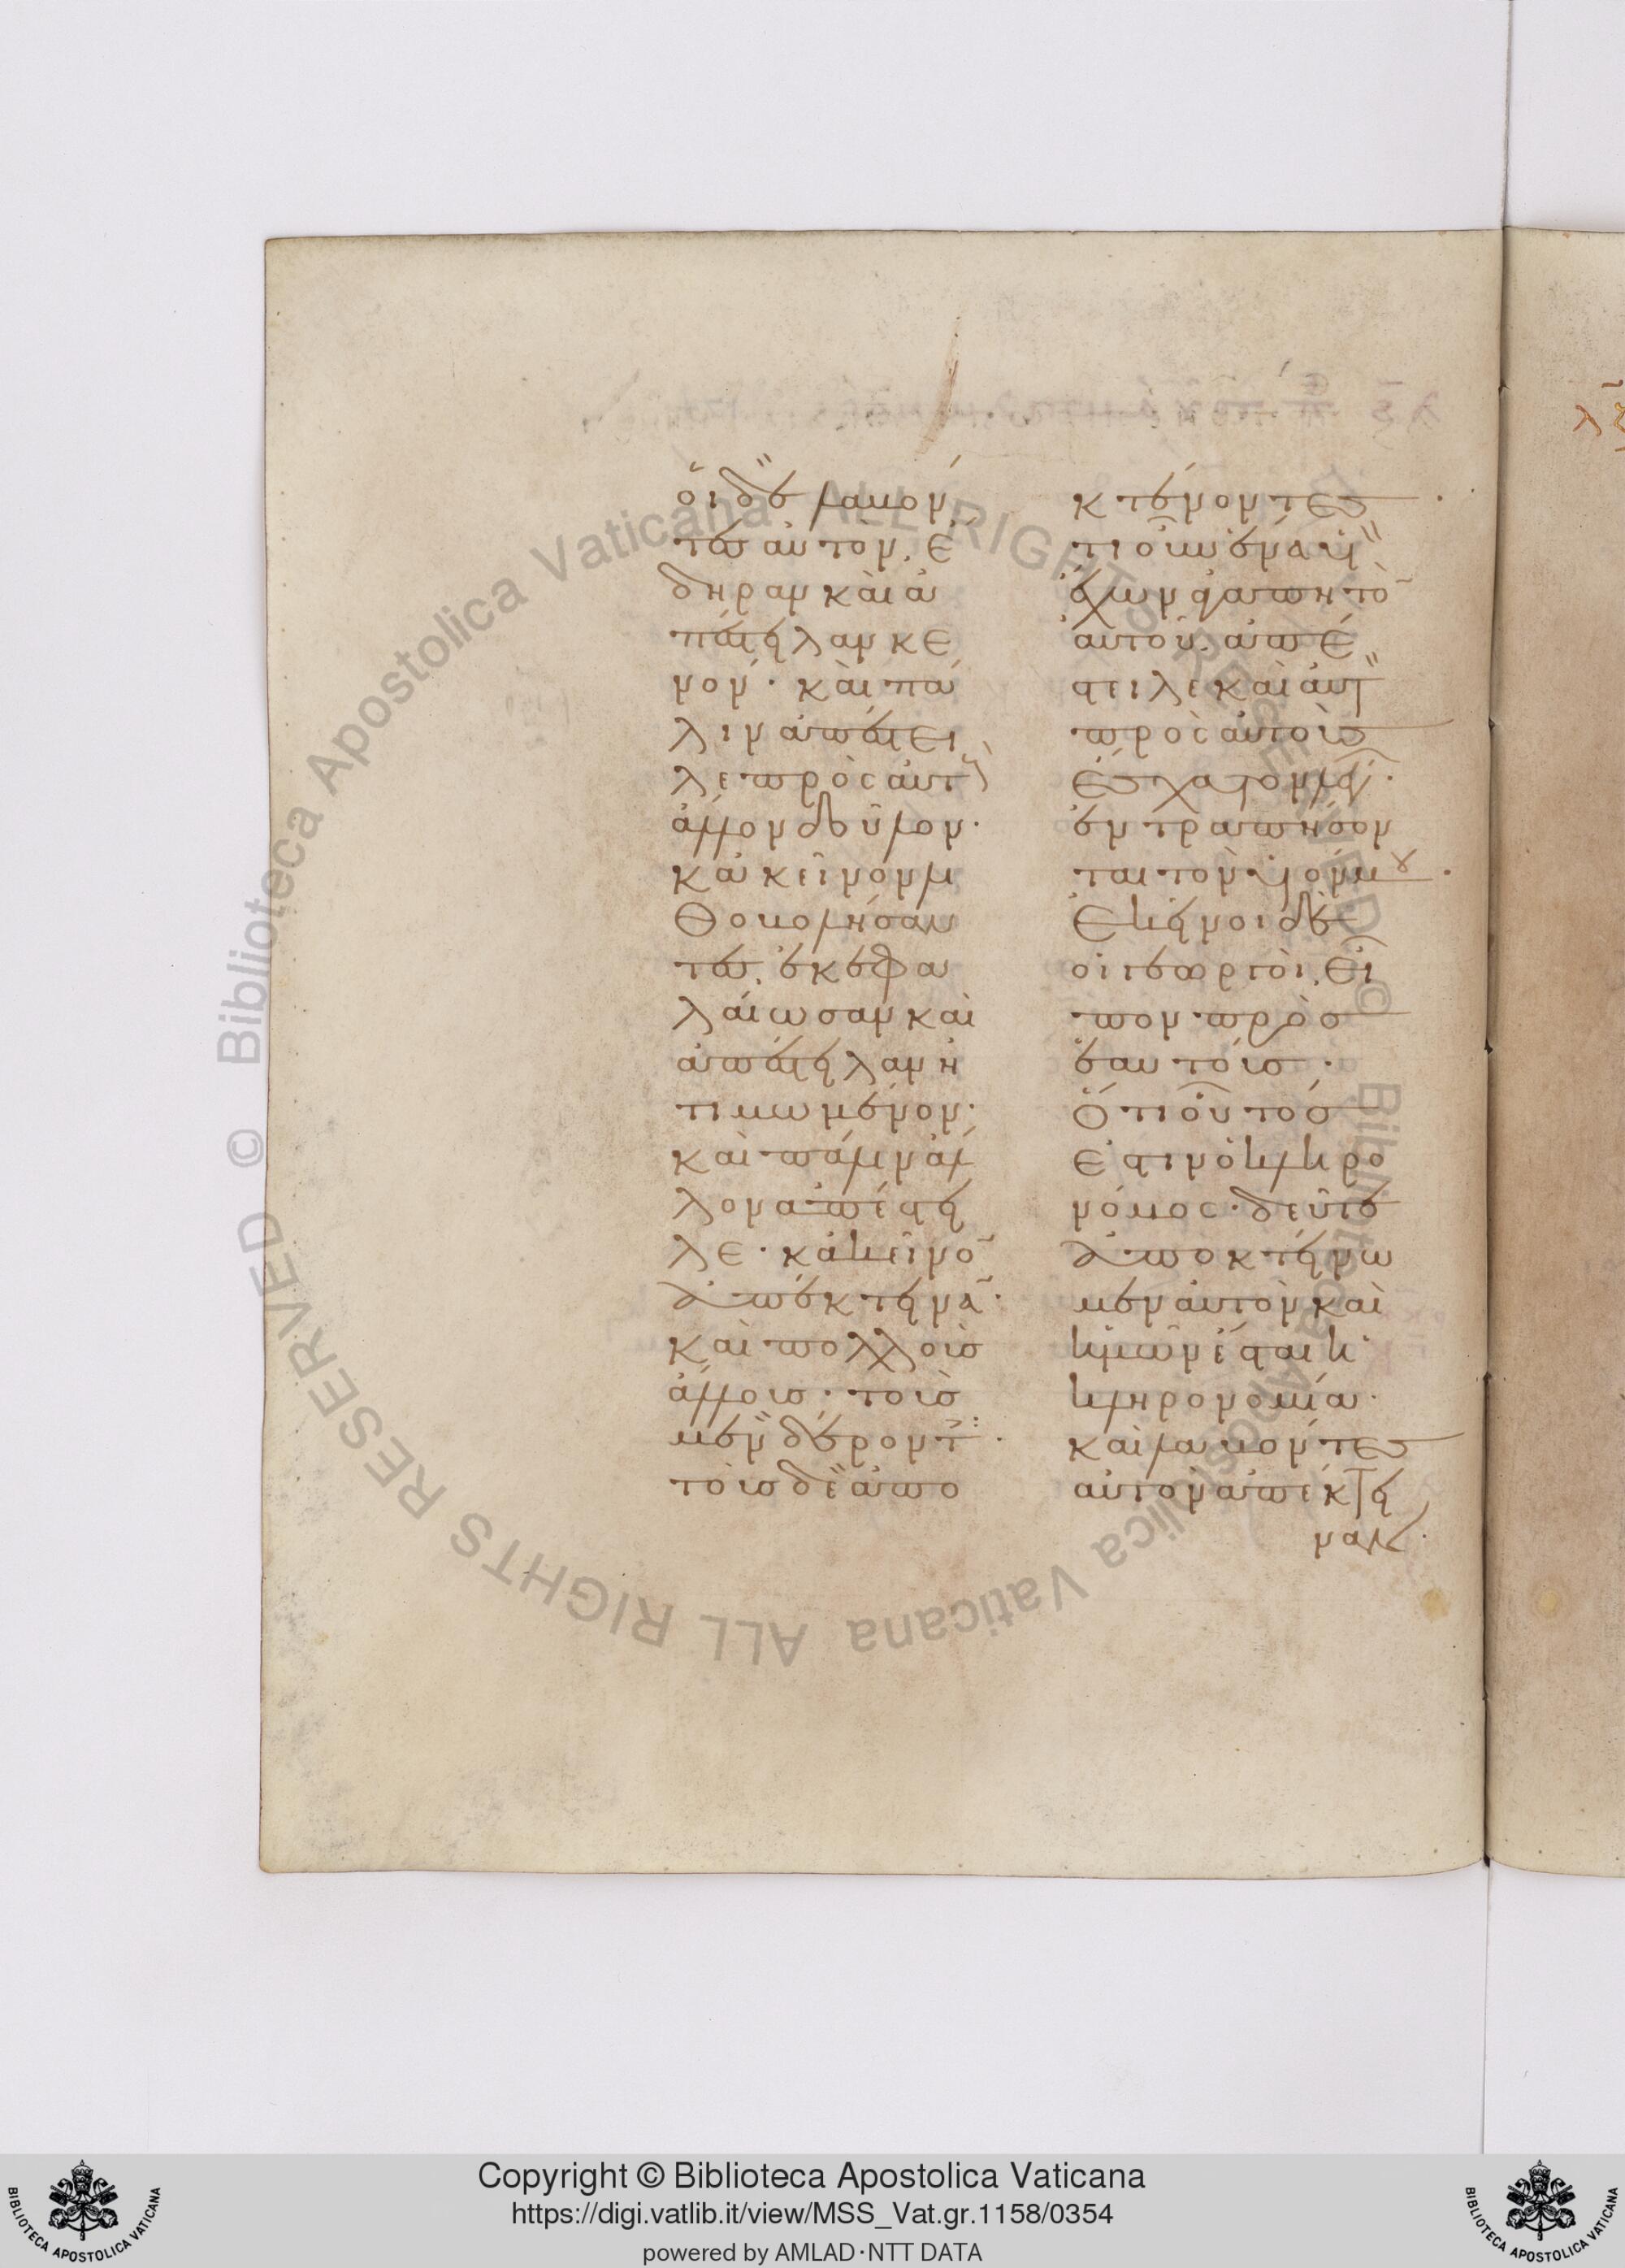 οἱ δὲ λαβόν
τες αὐτὸν ἔ
δηραν καὶ ἀ
πέστειλαν κε
νόν· καὶ πά
λιν ἀπέστει
λε πρὸς αὐτ
ἄλλον δοῦλον·
κἀκεῖνον λι
θοβολήσαν
τες ἐκεφα
λαίωσαν καὶ
ἀπέστειλαν ἠ
τιμωμένον·
καὶ πάλιν ἄλ
λον ἀπέστει
λε· κἀκεῖνο̄
ἀπέκτεινᾱ·
καὶ πολλοὺς
ἄλλους· τοὺς
μὲν δέροντ·
τοὺς δὲ ἀπο
κτένοντες·
ἔτι οὖν ἕνα υἱ
ἔχων ἀγαπητὸ̄
αὐτοῦ. ἀπέ
στειλε καὶ αὐτ
πρὸς αὐτοὺς
ἔσχατον λέγ·
ἐντραπήσον
ται τὸν υἱόν μου·
Ἐκεῖνοι δὲ
οἱ γεωργοὶ εἶ
πον πρὸς
ἑαυτούς·
Ὅτι οὗτός
ἐστιν ὁ κληρο
νόμος· δεῦτε
ἀποκτείνω
μεν αὐτὸν καὶ
ἡμῶν ἔσται ἡ
κληρονομία·
καὶ λαβόντες
αὐτὸν ἀπέκτει
ναν·
Copyright © Biblioteca Apostolica Vaticana
https://digi.vatlib.it/view/MSS_Vat.gr.1158/0354
powered by AMLAD·NTT DATA